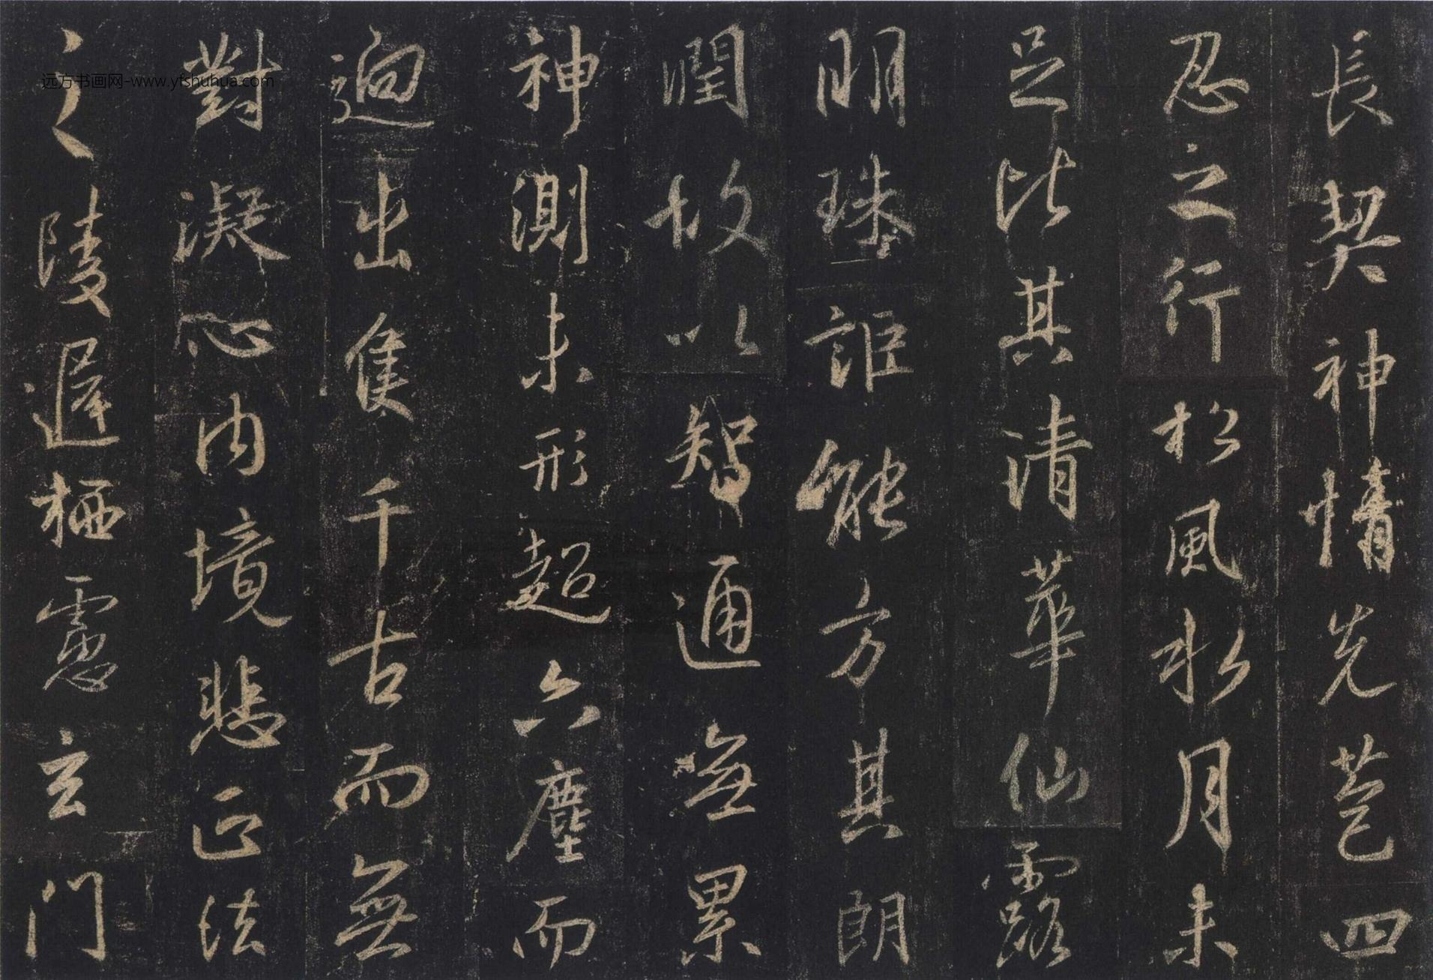 長契神情先苞四
忍之行松風水月未
足比其清華仙露
明珠詎能方其朗
潤故以智通無累
神測未形超六塵而
迥出隻千古而無
對凝心內境悲正法
之陵遲栖慮玄門
远方书画网-www.yfshuhua.com